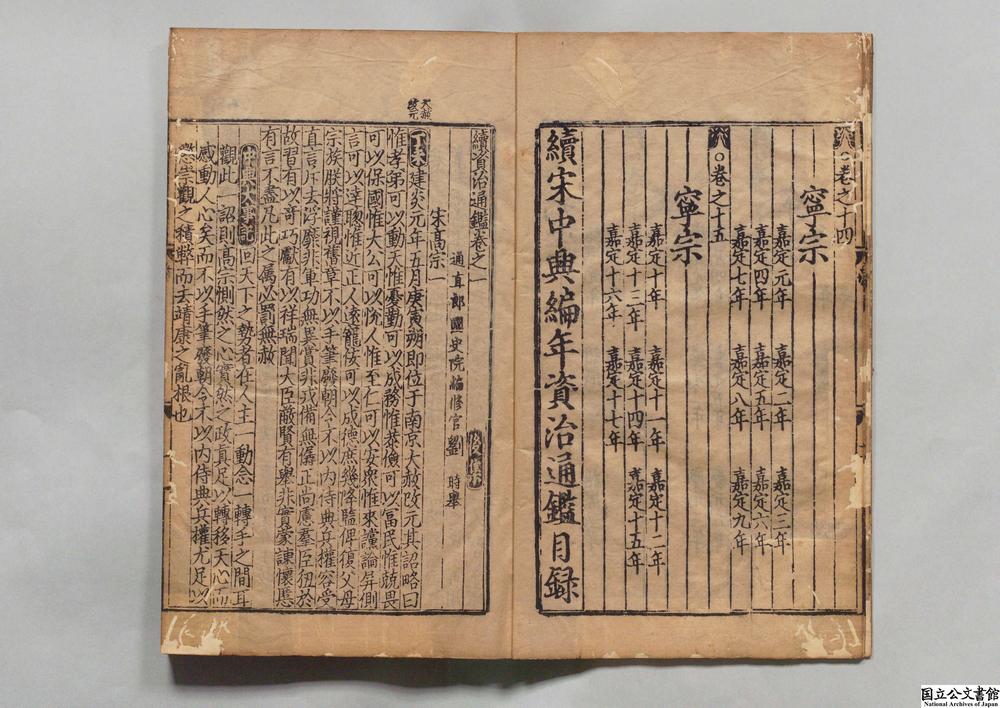 ○卷之十四
寧宗
嘉定元年 嘉定二年 嘉定三年
嘉定四年 嘉定五年 嘉定六年
嘉定七年 嘉定八年 嘉定九年
○卷之十五
寧宗
嘉定十年 嘉定十一年 嘉定十二年
嘉定十三年 嘉定十四年 嘉定十五年
嘉定十六年 嘉定十七年
續宋中興編年資治通鑑目録
續資治通鑑卷之一
通直郎國史院編修官劉 時舉
宋高宗一
大赦
改元
丁未建炎元年五月庚寅朔即位于南京大赦改元其詔略曰
惟孝弟可以動天惟憂勤可以成務惟恭儉可以富民惟兢畏
可以保國惟大公可以恱人惟至仁可以安衆惟來讜論屏側
言可以達聦惟近正人遠寵佞可以成德庶幾降監俾復父母
宗族朕將謹視舊章不以手筆廢朝令不以内侍典兵權容受
直言斥去浮靡非軍功無異賞非戎備無僝工尚慮羣臣狃於
故習有以奇巧獻有以祥瑞聞大臣蔽賢有舉非實臺諫懷慝
有言不盡凡此之屬必罰無赦
中興大事記回天下之勢者在人主一動念一轉手之間耳
觀此一詔則高宗惻然之心實然之政真足以轉移天心而
感動人心矣而不以手筆廢朝令不以内侍典兵權尤足以
懲崇觀之積弊而去靖康之亂根也
国立公文書館
National Archives of Japan